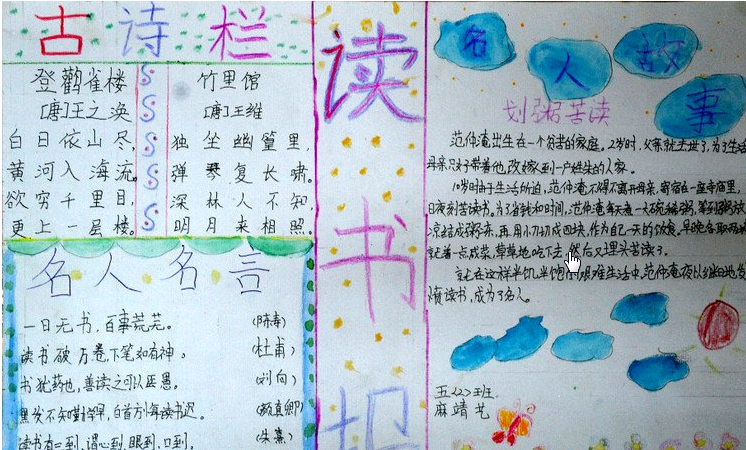 古诗栏
登鹳雀楼
[唐]王之涣
白日依山尽,
黄河入海流。
欲穷千里目,
更上一层楼。
竹里馆
[唐]王维
独坐幽篁里,
弹琴复长啸。
深林人不知
明月来相照。
名人名言
一日无书,百事荒芜。(陈寿)
读书破万卷,下笔如有神。(杜甫)
书犹药也,善读之可以医愚。(刘向)
黑发不知勤学早,白首方悔读书迟。(颜真卿)
读书有三到,谓心到,眼到,口到,(朱熹)
读书报
名人故事
划粥苦读
范仲淹出生在一个贫苦的家庭。2岁时,父亲就去世了,为了生活
母亲只好带着他改嫁到一户姓朱的人家。
10岁时由于生活所迫,范仲淹不得不离开母亲,寄宿在一座寺庙里,
日夜刻苦读书。为了省钱和时间,范仲淹每天煮一大碗稀粥,等到粥放
凉结成粥冻,再用小刀切成四块,作为自己一天的饭食,早晚各取两块
就着一点咸菜,草草地吃下去,然后又埋头苦读了。
就在这样半饥半饱的艰难生活中,范仲淹夜以继日地发
愤读书,成为了名人。
五<2>班
麻靖艺